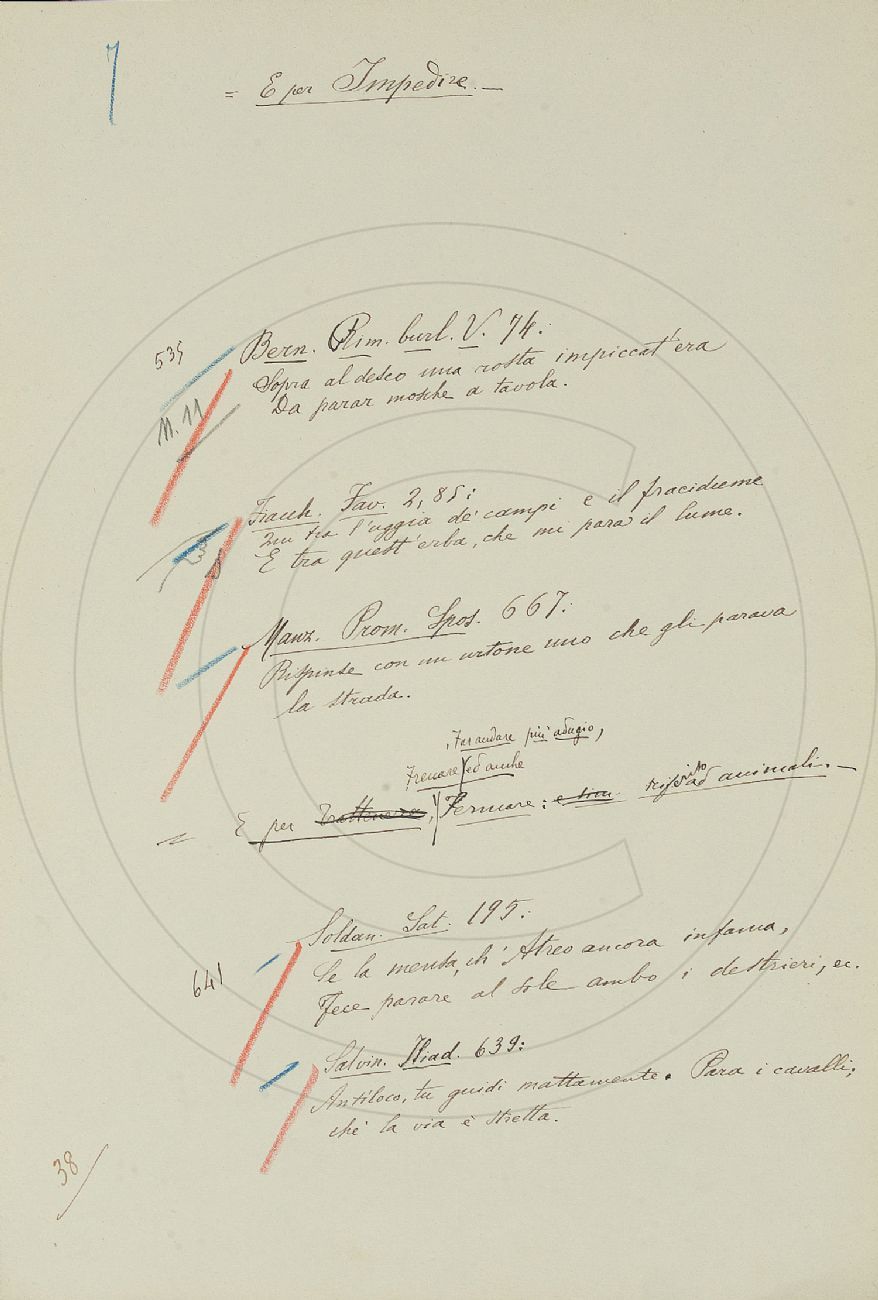 7
= E per Impedire. —
535
Bern. Rim. burl. V. 74:
Sopra al desco una rosta impiccat' era
Da parar mosche a tavola.
N. 11
Fiacch. Fav. 2, 85:
tra l'uggia de' campi e il fracidume
E tra quest' erba, che mi para il lume.
Manz. Prom. Spos. 667:
Rispinse con un urtone uno che gli parava
la strada.
, Far andare più adagio,
Frenare ed anche
= E per Trattenere, Fermare: rifer.to ad animali. —
641
Soldan. Sat. 195:
Se la mensa, ch' Atreo ancora infama,
Fece parare al sole ambo i destrieri, ec.
Salvin. Iliad. 639:
Antiloco, tu guidi mattamente. Para i cavalli;
chè la via è stretta.
38